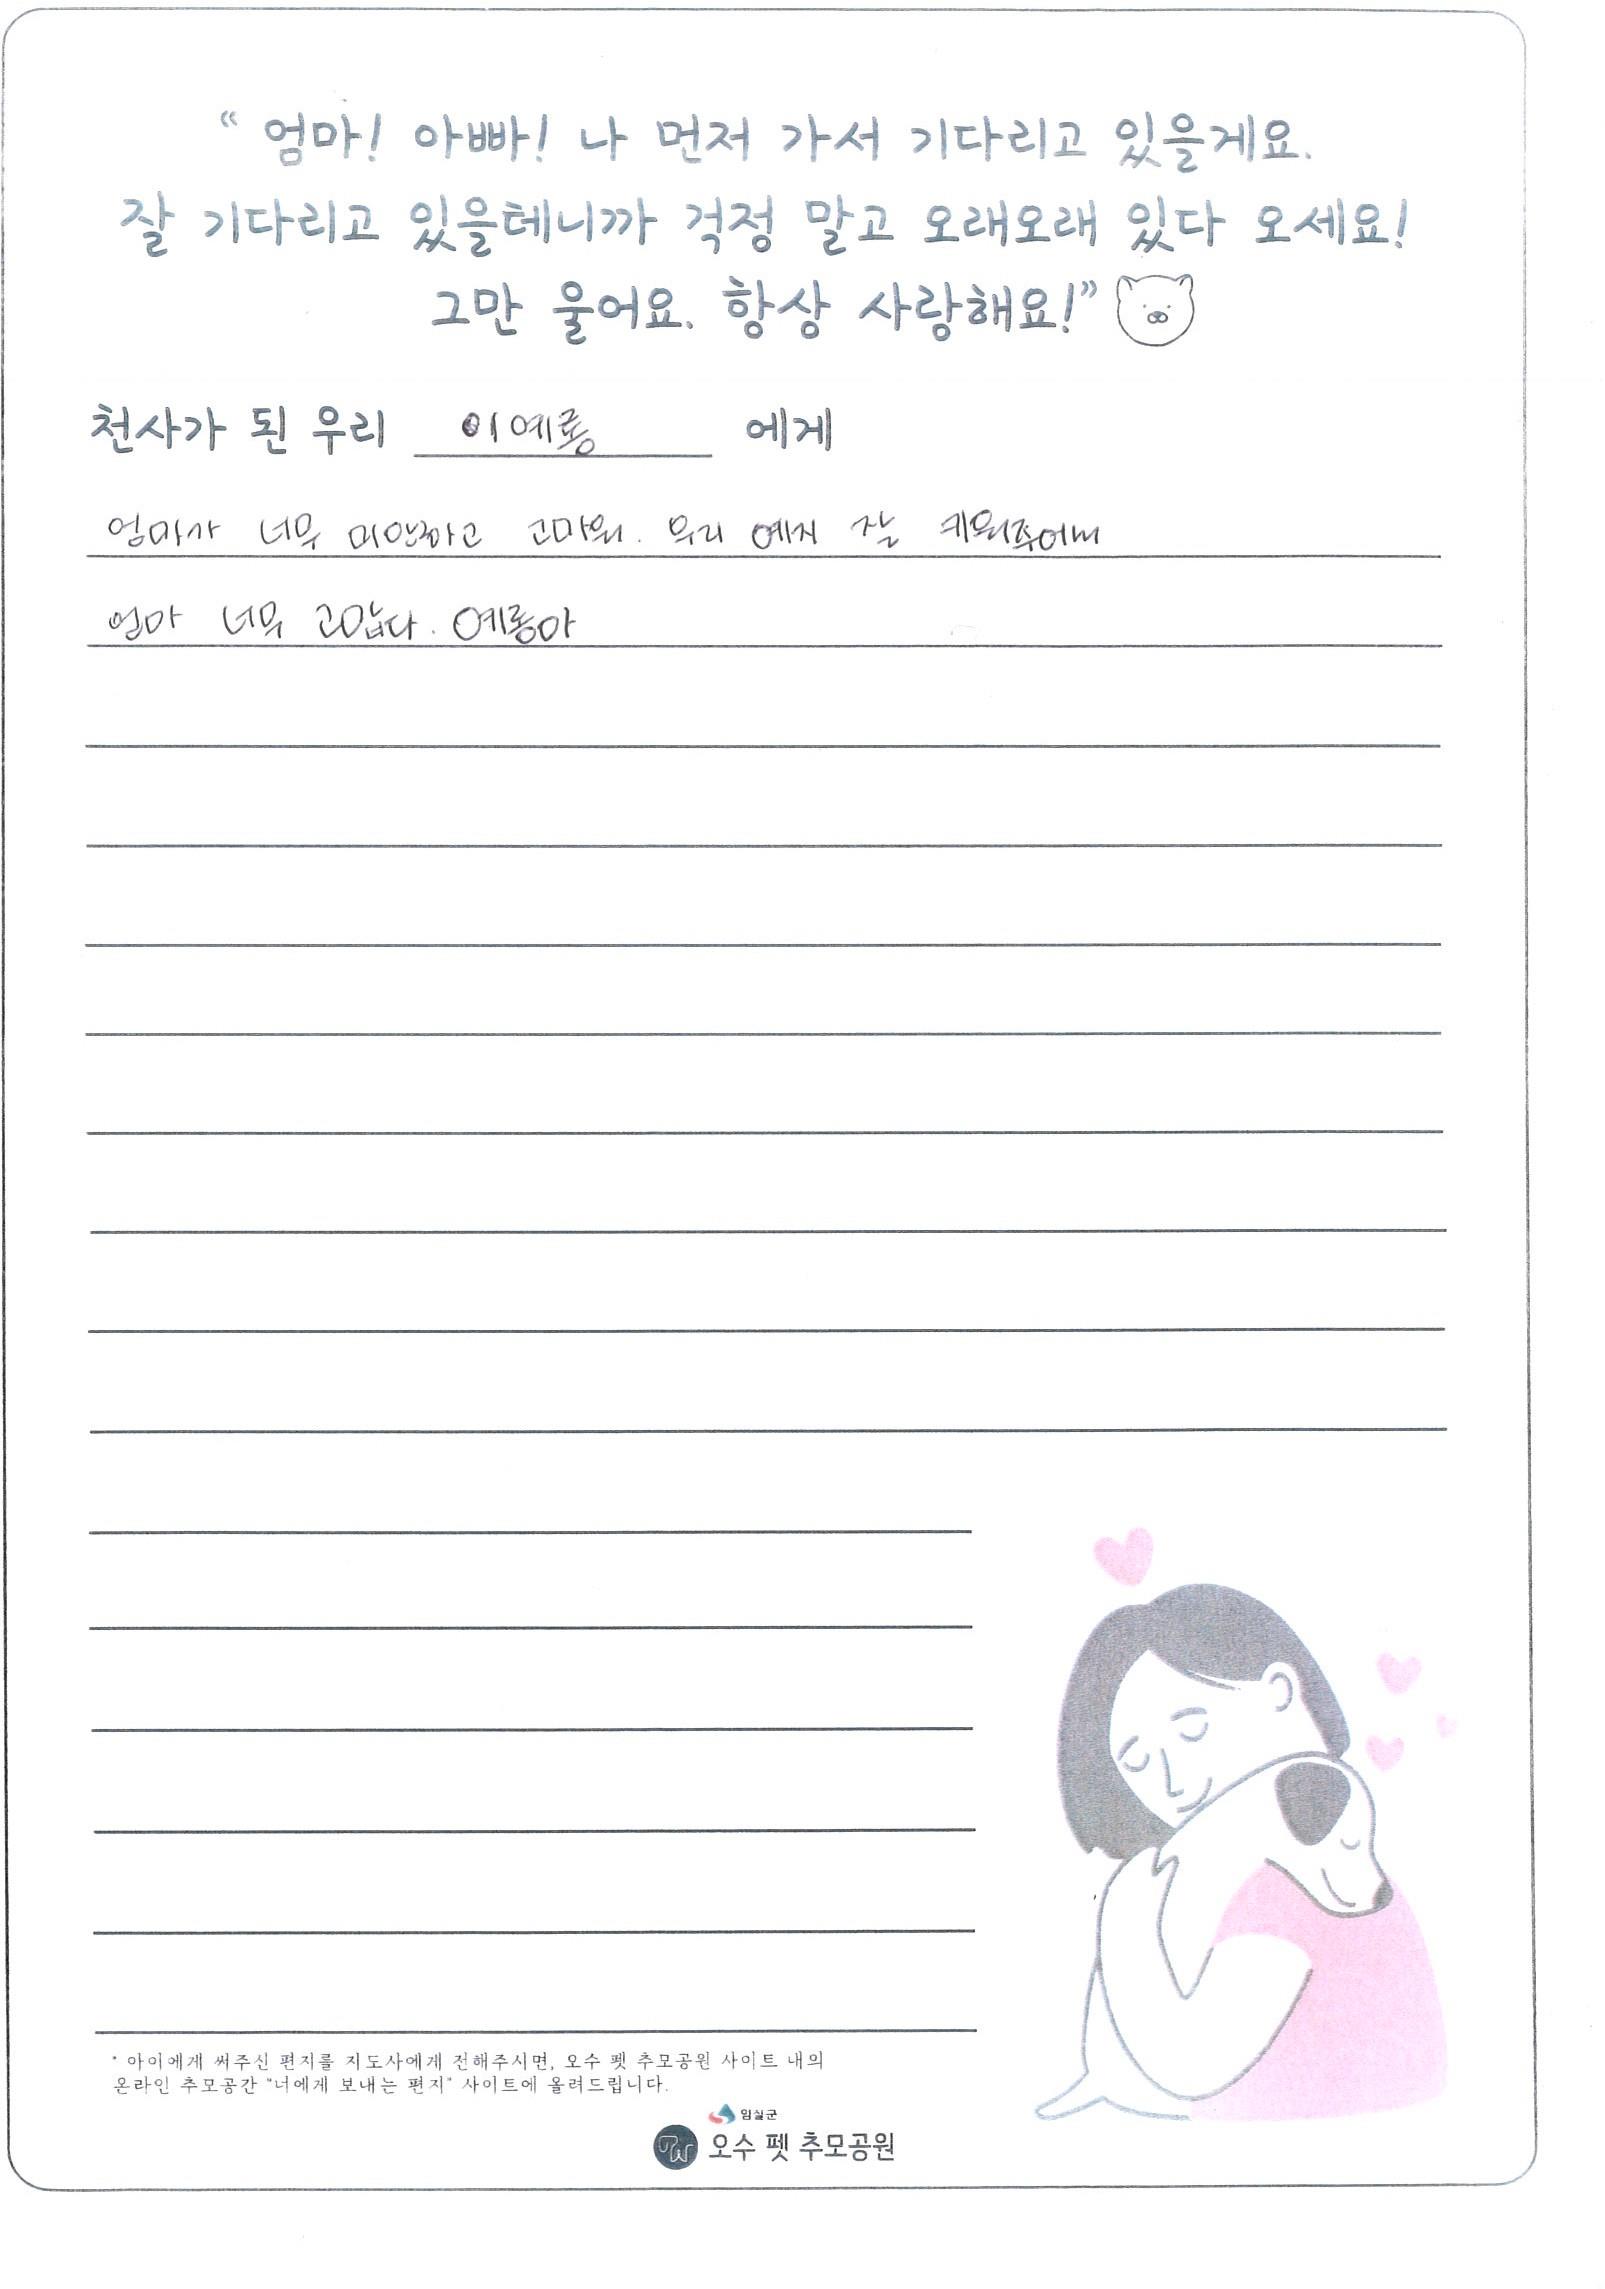 “ 엄마! 아빠! 나 먼저 가서 기다리고 있을게요.
잘 기다리고 있을테니까 걱정 말고 오래오래 있다 오세요!
그만 울어요. 항상 사랑해요!”
천사가 된 우리 이예롱 에게
엄마가 너무 미안하고 고마워. 우리 예지 잘 키워주어서
엄마 너무 고맙다. 예롱아
* 아이에게 써주신 편지를 지도사에게 전해주시면, 오수 펫 추모공원 사이트 내의
온라인 추모공간 “너에게 보내는 편지” 사이트에 올려드립니다.
임실군
PW 오수 펫 추모공원